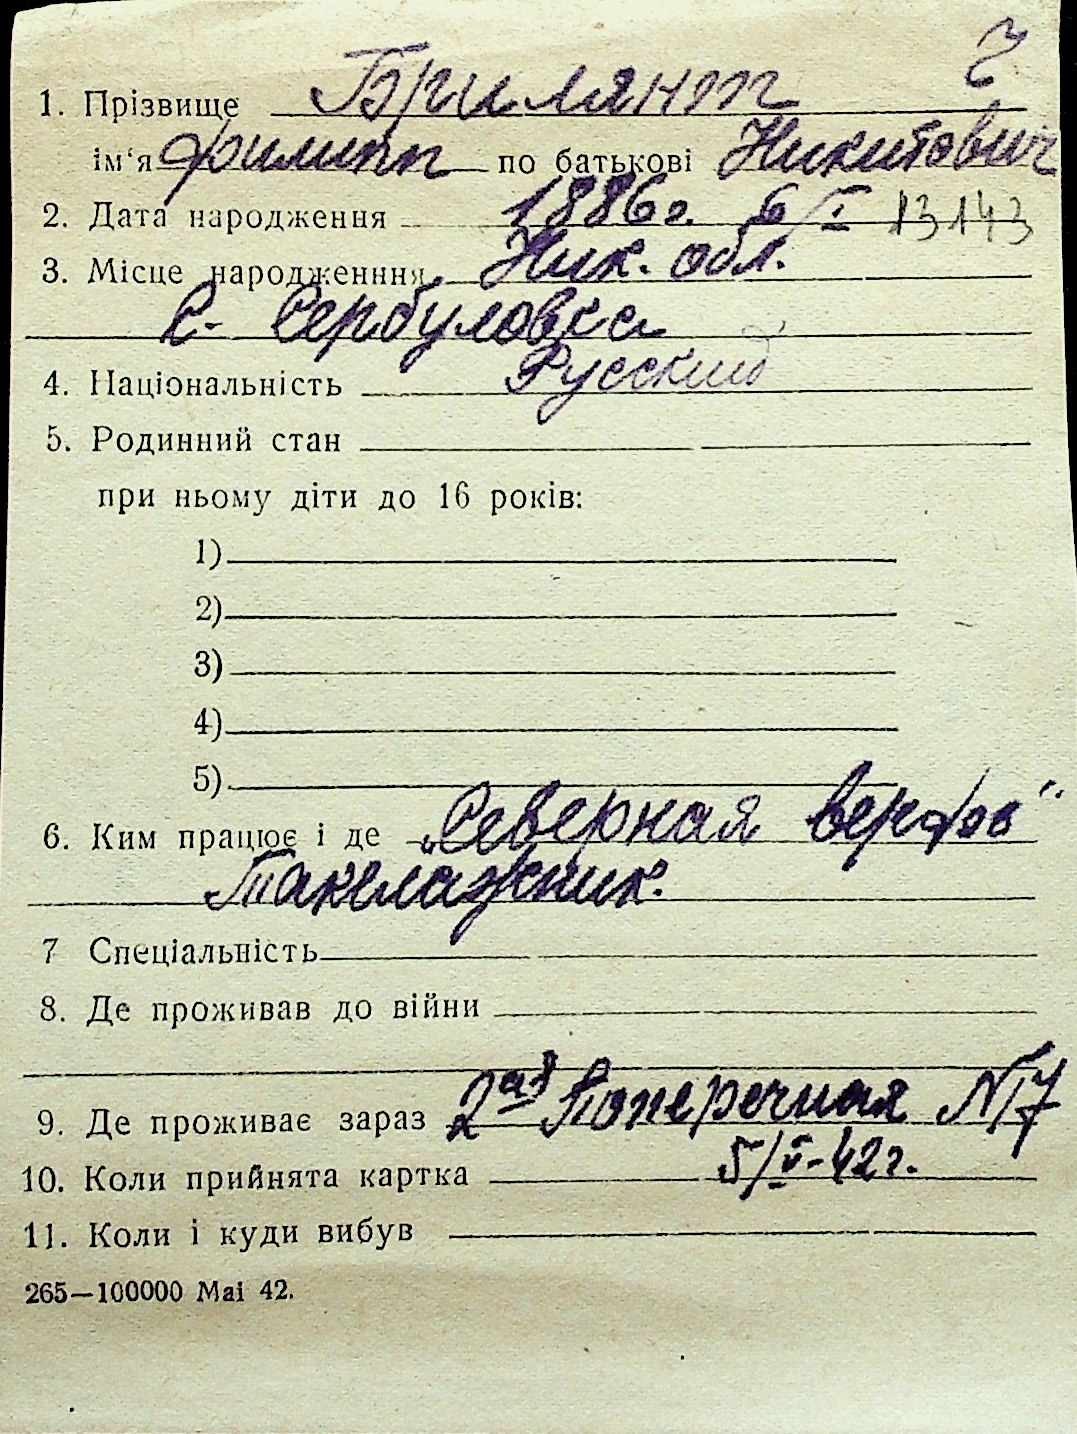 1. Прізвище Брилянт
ім'я Филипп по батькові Никитович
2. Дата народження 1886г. 6/I 13143
3. Місце народженння Ник. обл.
с. Сербуловка
4. Національність Русский
5. Родинний стан
при ньому діти до 16 років:
1)
2)
3)
4)
5)
6. Ким працює і де „Северная верфь"
Такелажник.
7 Спеціальність
8. Де проживав до війни
9. Де проживає зараз 2ая Поперечная №7
10. Коли прийнята картка 5/V-42г.
11. Коли і куди вибув
265—100000 Mai 42.